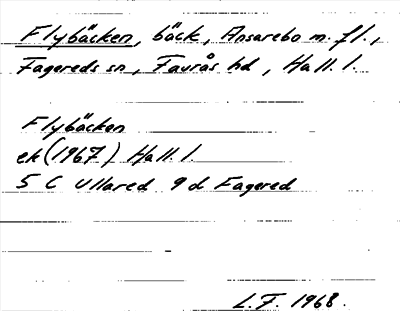 Flybäcken, bäck, Ansarebo m. fl.,
Fagereds sn, Faurås hd, Hall. l.
Flybäcken
ek (1967) Hall. l.
5 C Ullared 9 d Fagered
L.F. 1968.